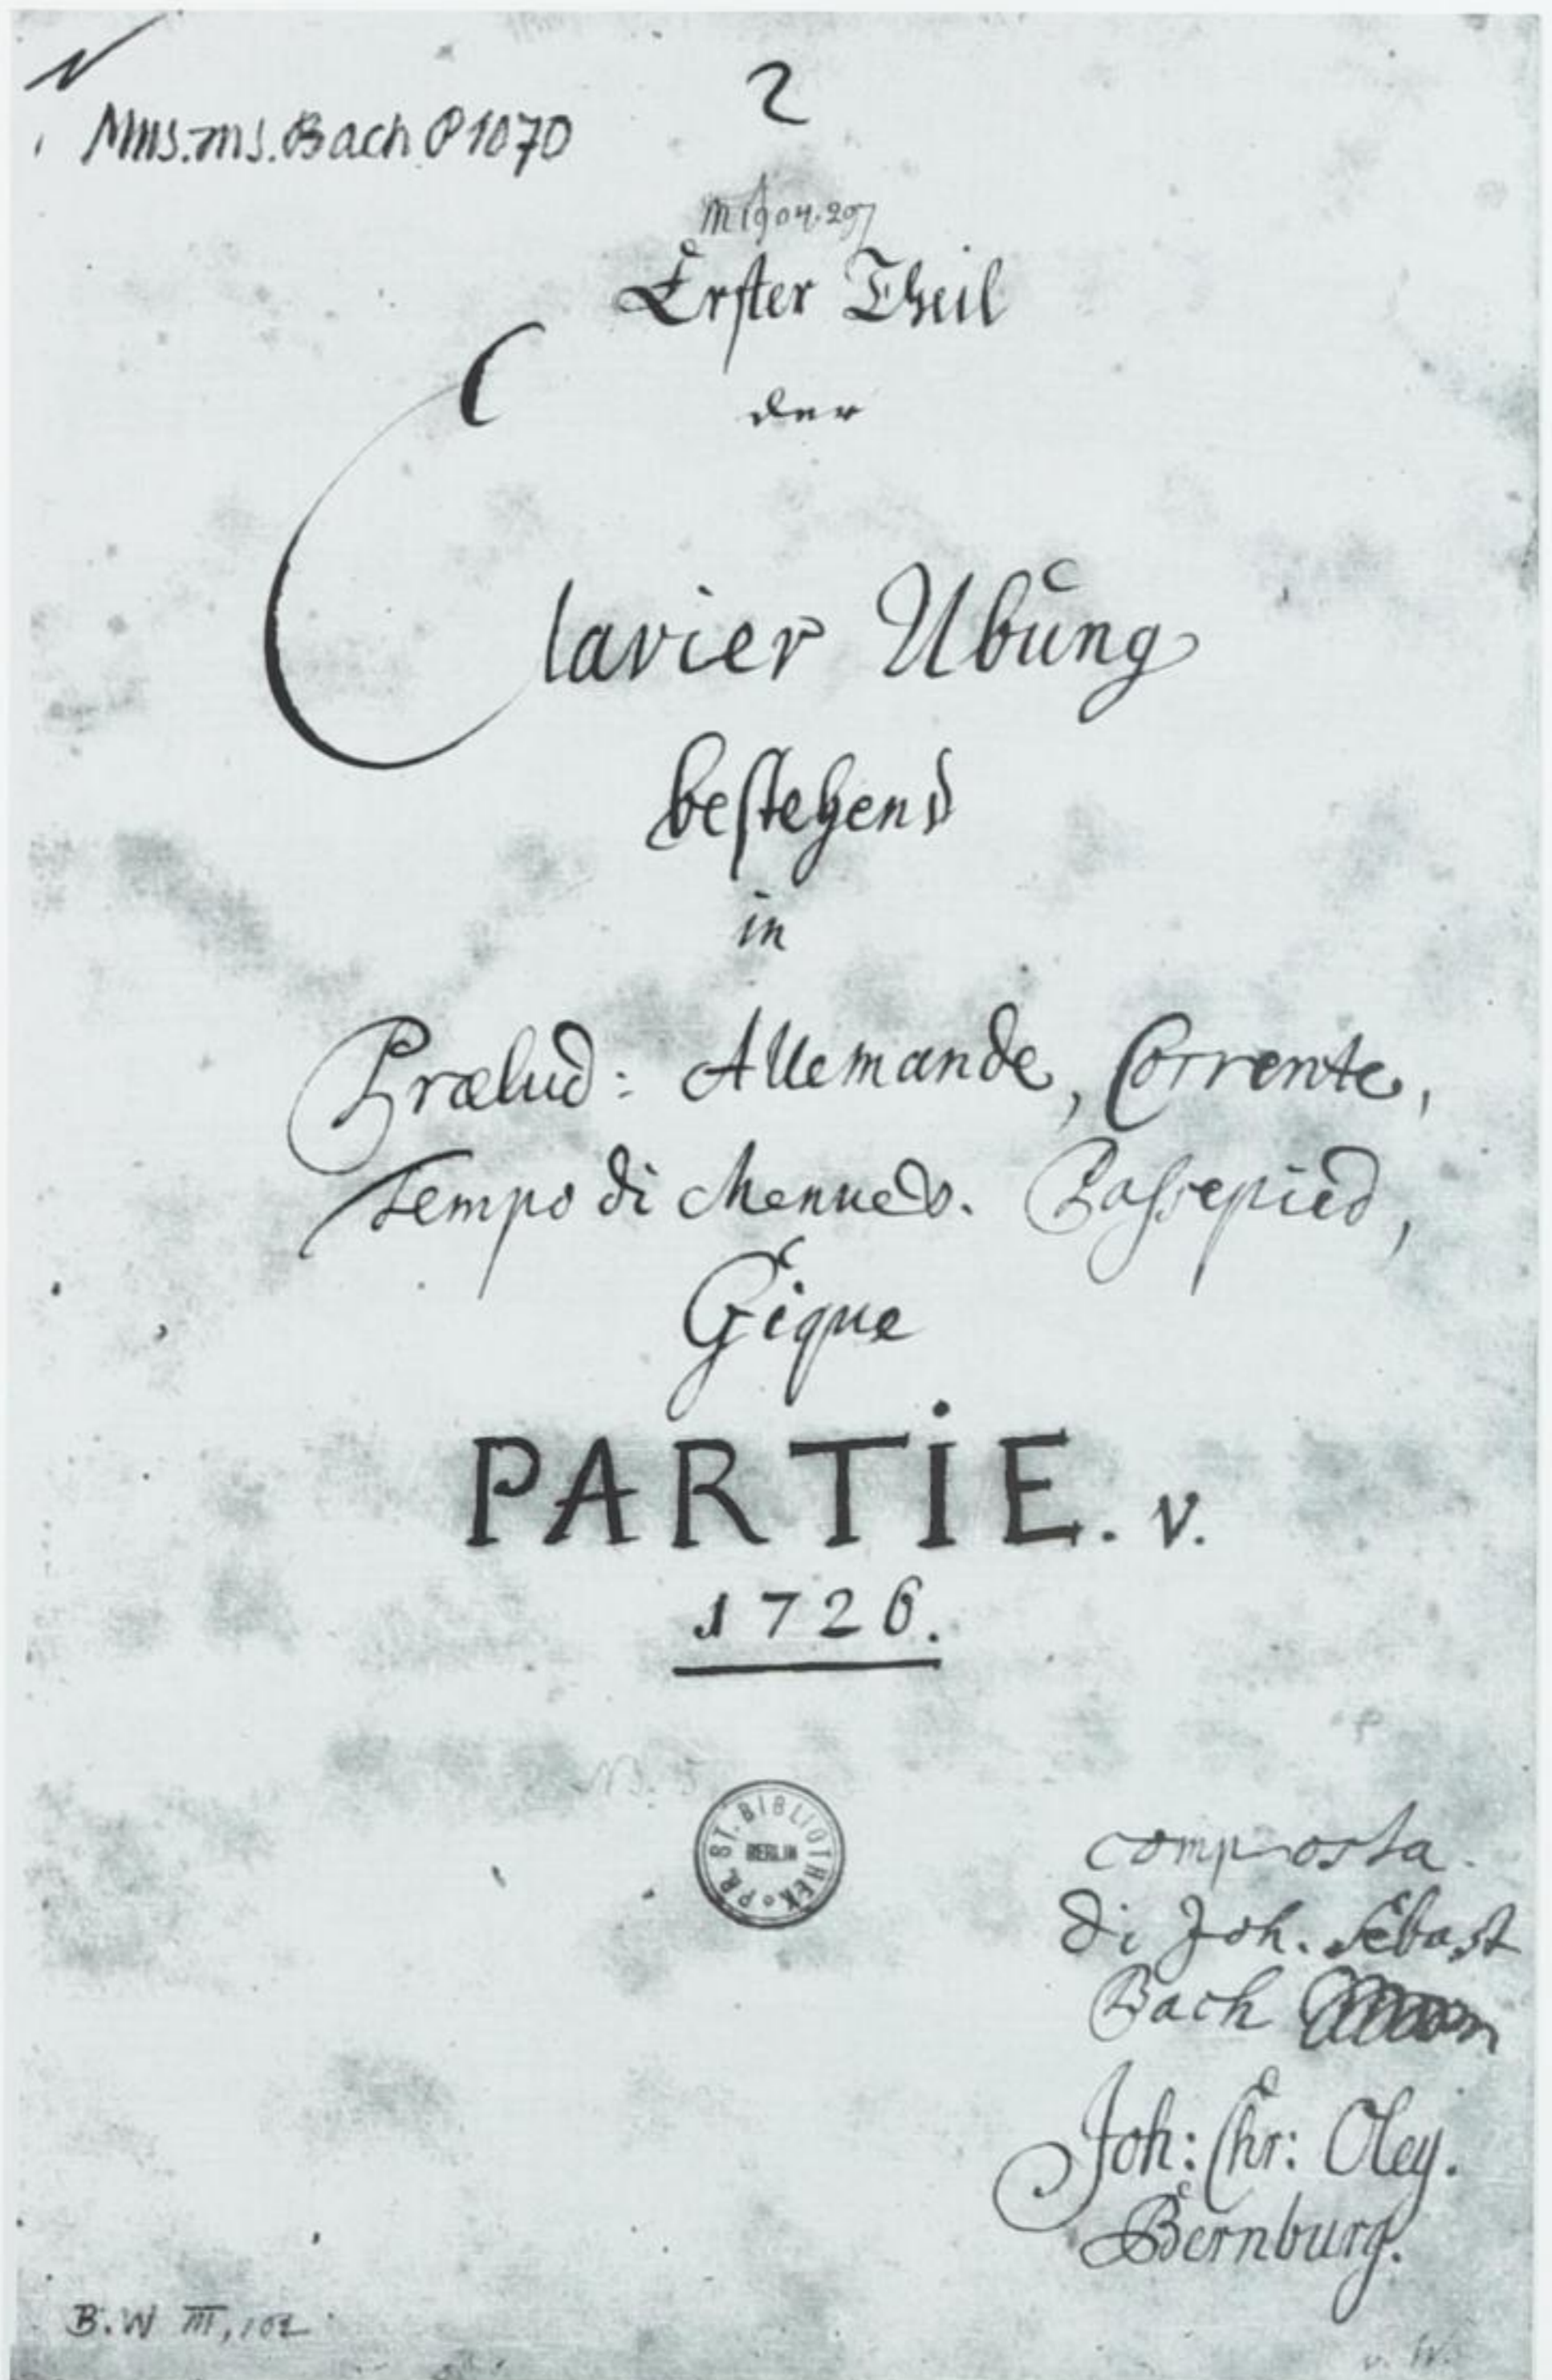 Mus. ms. Bach P 1070
2
M 1904.297
Erster Theil
der
Clavier Ubung
bestehend
in
Prælud: Allemande, Corrente,
Tempo di Menuet. Passepied,
Gique
PARTIE. V.
1726.
PR. ST. BIBLIOTHEK
BERLIN
composta
di Joh. Sebast
Bach
Joh: Chr: Oley.
Bernburg.
B.W III, 102